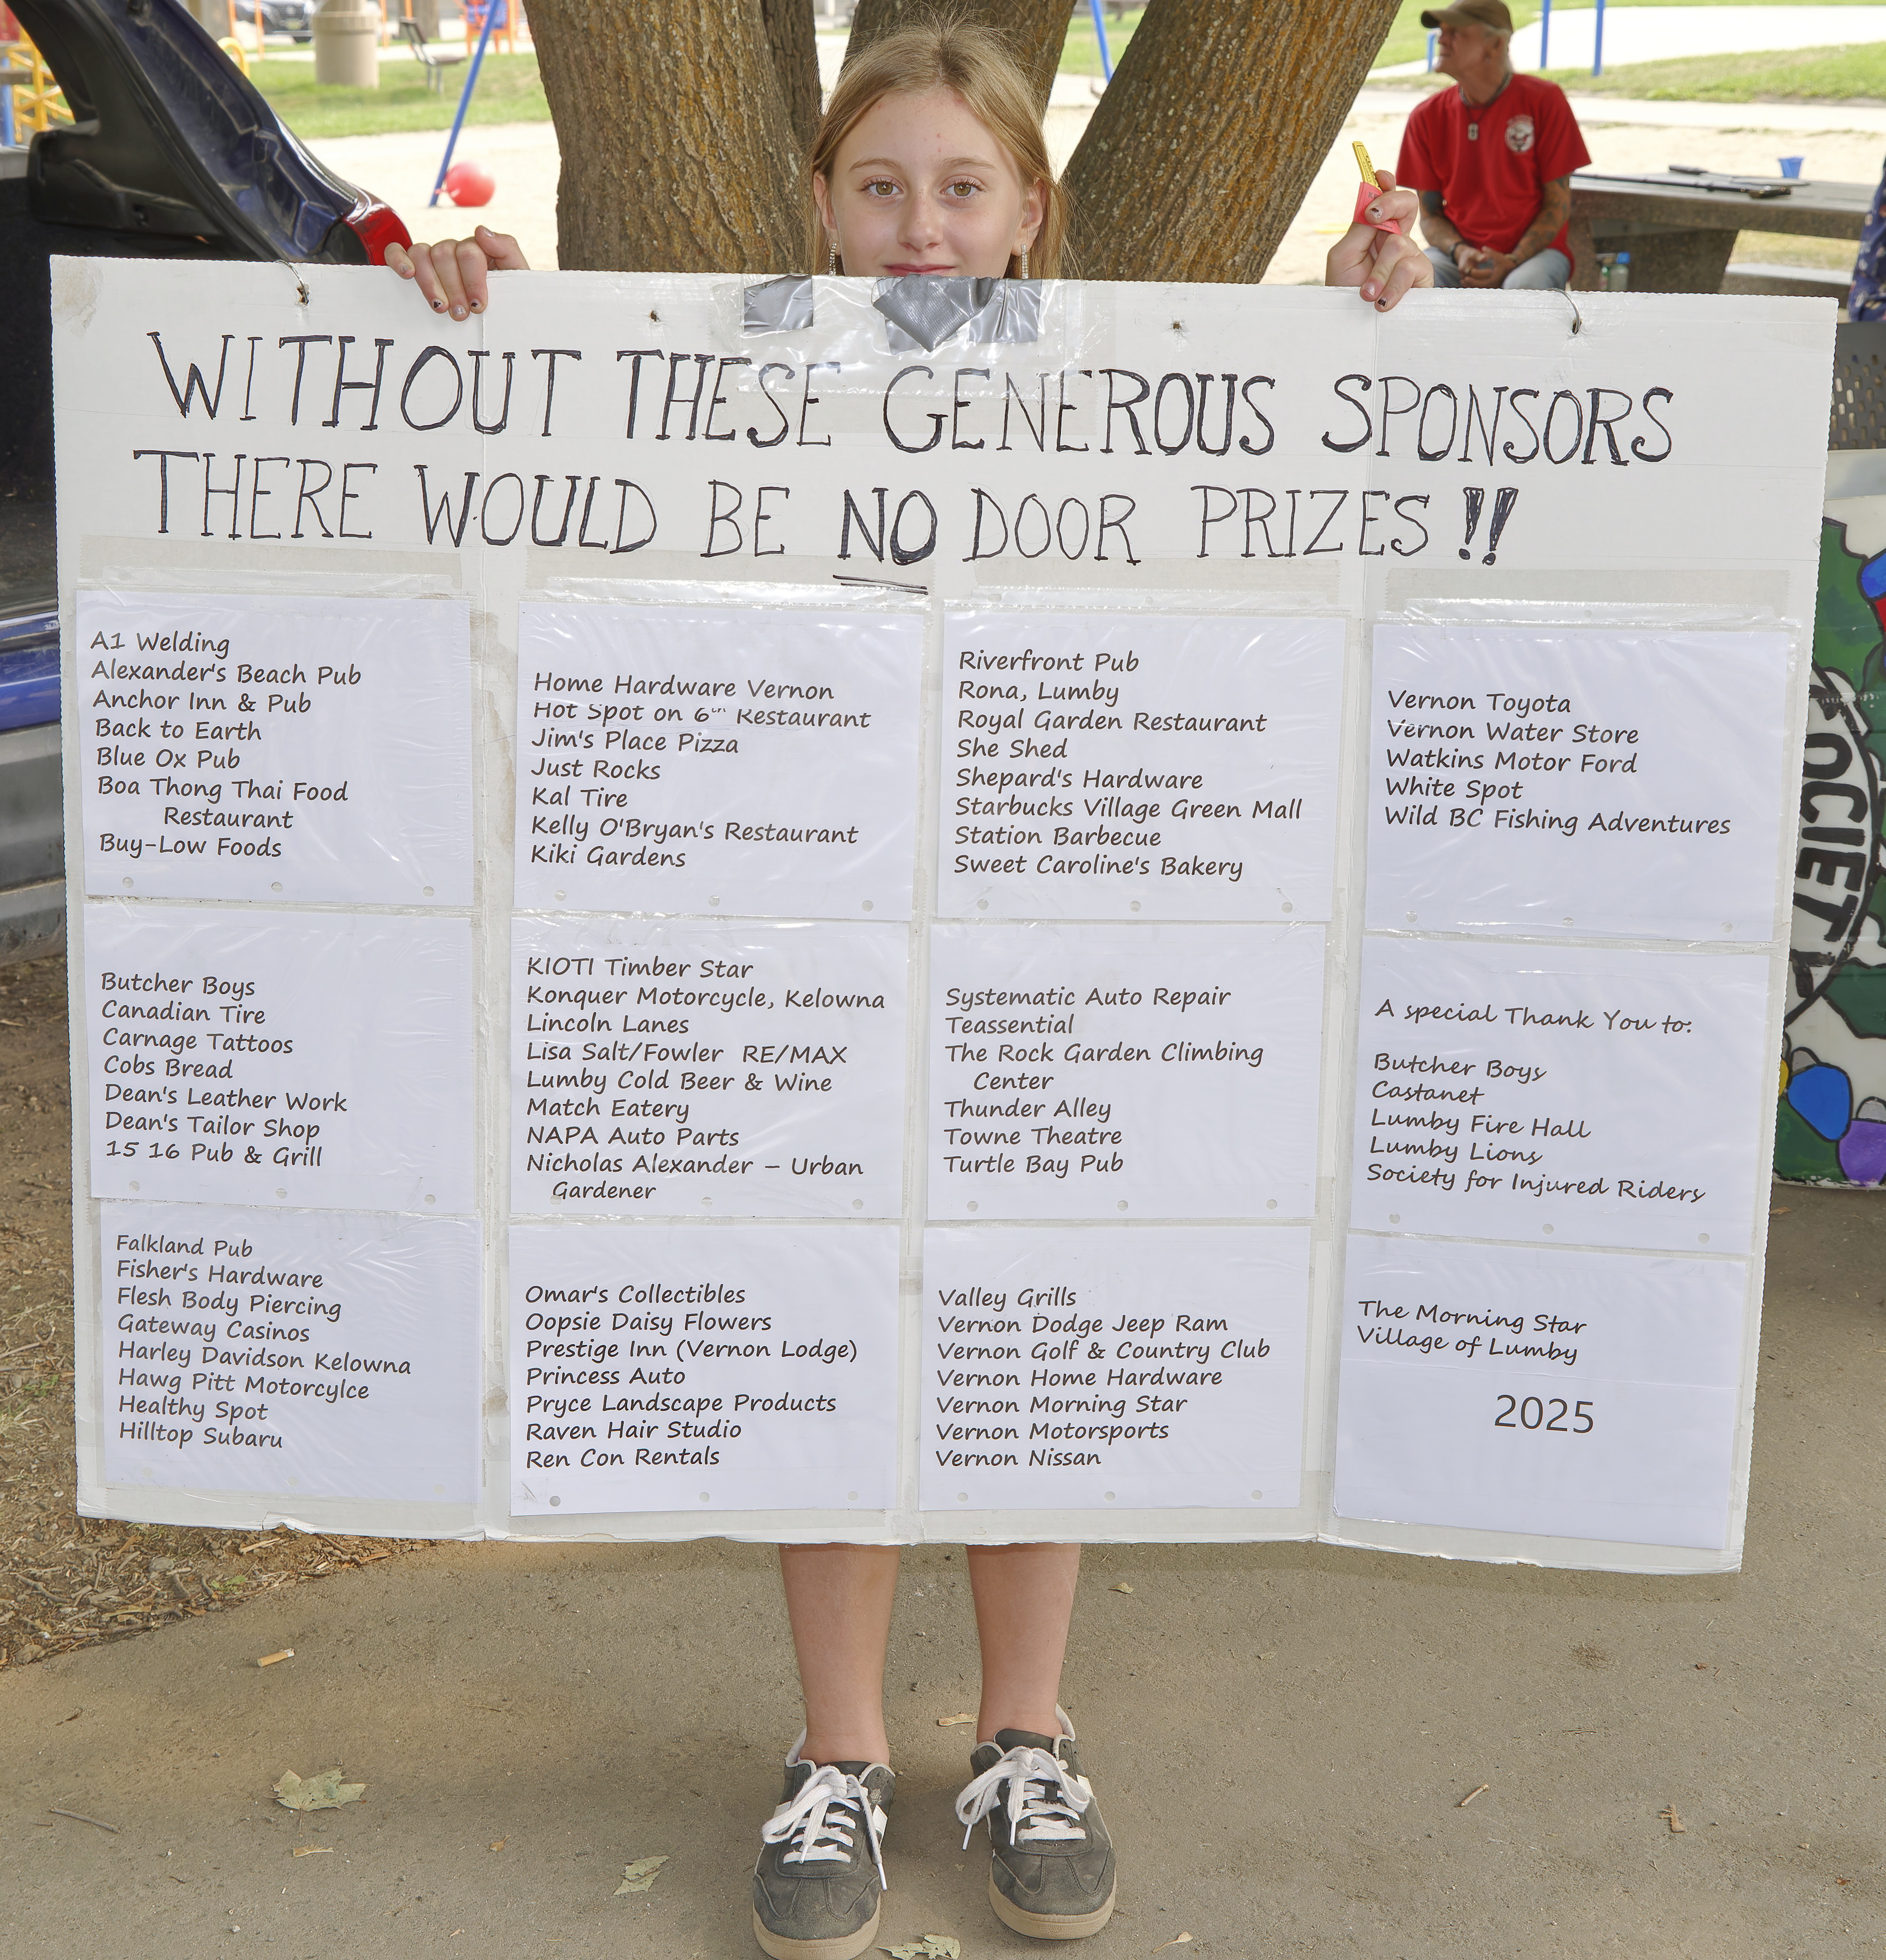 WITHOUT THESE GENEROUS SPONSORS
THERE WOULD BE NO DOOR PRIZES!!
A1 Welding
Alexander's Beach Pub
Anchor Inn & Pub
Back to Earth
Blue Ox Pub
Boa Thong Thai Food
Restaurant
Buy-Low Foods
Butcher Boys
Canadian Tire
Carnage Tattoos
Cobs Bread
Dean's Leather Work
Dean's Tailor Shop
15 16 Pub & Grill
Falkland Pub
Fisher's Hardware
Flesh Body Piercing
Gateway Casinos
Harley Davidson Kelowna
Hawg Pitt Motorcylce
Healthy Spot
Hilltop Subaru
Home Hardware Vernon
Hot Spot on 6th Restaurant
Jim's Place Pizza
Just Rocks
Kal Tire
Kelly O'Bryan's Restaurant
Kiki Gardens
KIOTI Timber Star
Konquer Motorcycle, Kelowna
Lincoln Lanes
Lisa Salt/Fowler RE/MAX
Lumby Cold Beer & Wine
Match Eatery
NAPA Auto Parts
Nicholas Alexander – Urban
Gardener
Omar's Collectibles
Oopsie Daisy Flowers
Prestige Inn (Vernon Lodge)
Princess Auto
Pryce Landscape Products
Raven Hair Studio
Ren Con Rentals
Riverfront Pub
Rona, Lumby
Royal Garden Restaurant
She Shed
Shepard's Hardware
Starbucks Village Green Mall
Station Barbecue
Sweet Caroline's Bakery
Systematic Auto Repair
Teassential
The Rock Garden Climbing
Center
Thunder Alley
Towne Theatre
Turtle Bay Pub
Valley Grills
Vernon Dodge Jeep Ram
Vernon Golf & Country Club
Vernon Home Hardware
Vernon Morning Star
Vernon Motorsports
Vernon Nissan
Vernon Toyota
Vernon Water Store
Watkins Motor Ford
White Spot
Wild BC Fishing Adventures
A special Thank You to:
Butcher Boys
Castanet
Lumby Fire Hall
Lumby Lions
Society for Injured Riders
The Morning Star
Village of Lumby
2025